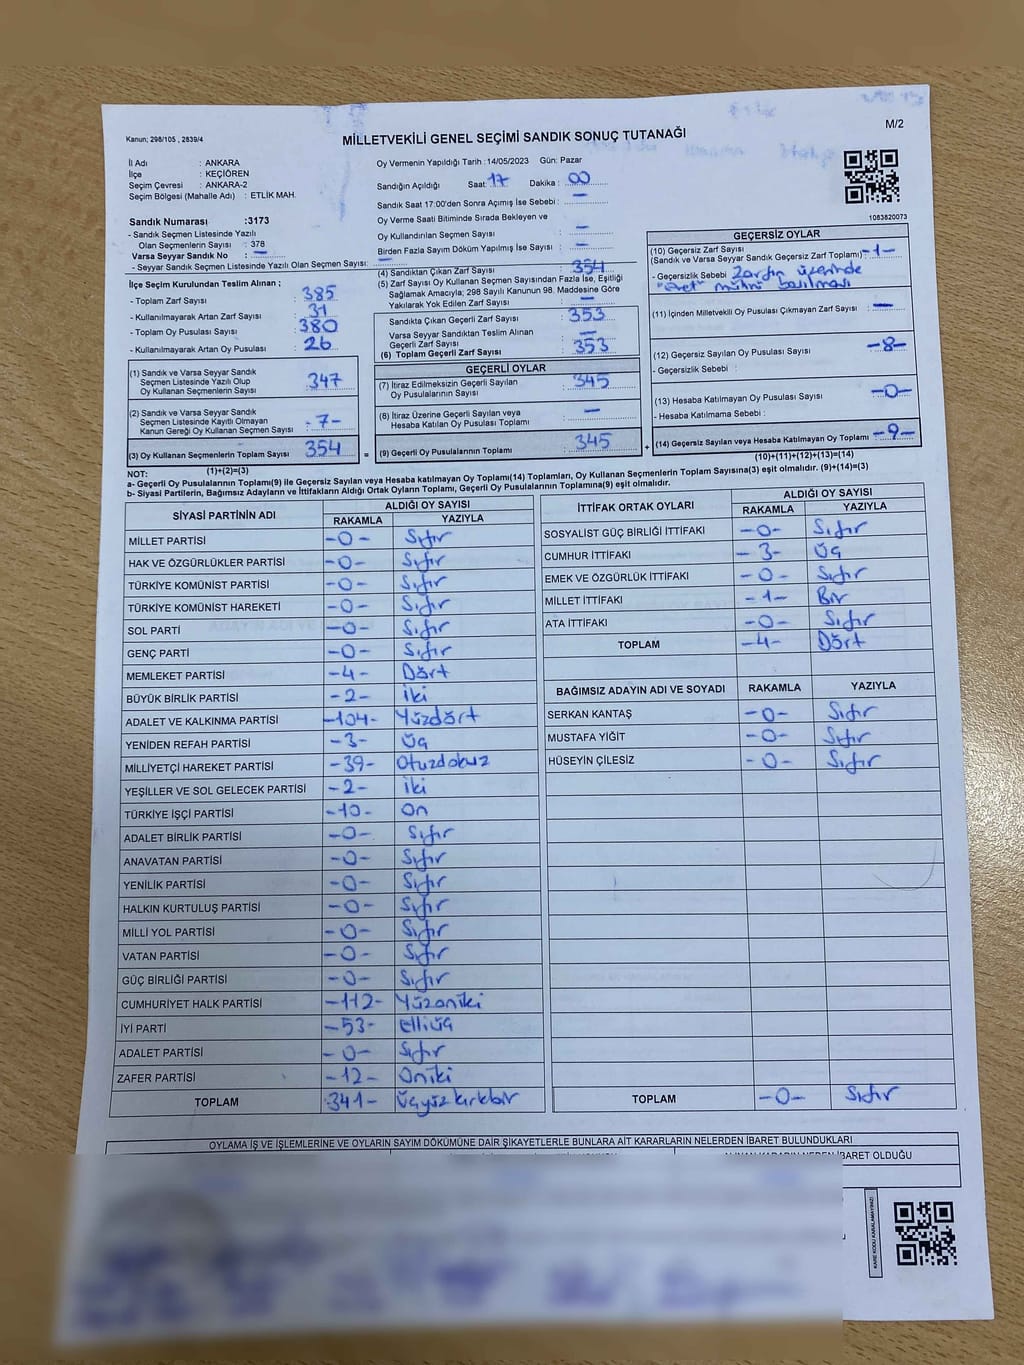 M/2
Kanun; 298/105 , 2839/4
MİLLETVEKİLİ GENEL SEÇİMİ SANDIK SONUÇ TUTANAĞI
İl Adı : ANKARA
İlçe : KEÇİÖREN
Seçim Çevresi : ANKARA-2
Seçim Bölgesi (Mahalle Adı) : ETLİK MAH.
Sandık Numarası :3173
- Sandık Seçmen Listesinde Yazılı
Olan Seçmenlerin Sayısı : 378
Varsa Seyyar Sandık No : —
- Seyyar Sandık Seçmen Listesinde Yazılı Olan Seçmen Sayısı: —
İlçe Seçim Kurulundan Teslim Alınan ;
- Toplam Zarf Sayısı : 385
- Kullanılmayarak Artan Zarf Sayısı : 31
- Toplam Oy Pusulası Sayısı : 380
- Kullanılmayarak Artan Oy Pusulası : 26
(1) Sandık ve Varsa Seyyar Sandık
Seçmen Listesinde Yazılı Olup
Oy Kullanan Seçmenlerin Sayısı : 347
(2) Sandık ve Varsa Seyyar Sandık
Seçmen Listesinde Kayıtlı Olmayan
Kanun Gereği Oy Kullanan Seçmen Sayısı : -7-
(3) Oy Kullanan Seçmenlerin Toplam Sayısı : 354
(1)+(2)=(3)
Oy Vermenin Yapıldığı Tarih :14/05/2023 Gün: Pazar
Sandığın Açıldığı Saat: 17 Dakika : 00
Sandık Saat 17:00'den Sonra Açımış İse Sebebi : —
Oy Verme Saati Bitiminde Sırada Bekleyen ve
Oy Kullandırılan Seçmen Sayısı : —
Birden Fazla Sayım Döküm Yapılmış İse Sayısı : —
(4) Sandıktan Çıkan Zarf Sayısı : 354
(5) Zarf Sayısı Oy Kullanan Seçmen Sayısından Fazla İse, Eşitliği
Sağlamak Amacıyla; 298 Sayılı Kanunun 98. Maddesine Göre
Yakılarak Yok Edilen Zarf Sayısı :
Sandıkta Çıkan Geçerli Zarf Sayısı : 353
Varsa Seyyar Sandıktan Teslim Alınan
Geçerli Zarf Sayısı : —
(6) Toplam Geçerli Zarf Sayısı : 353
GEÇERLİ OYLAR
(7) İtiraz Edilmeksizin Geçerli Sayılan
Oy Pusulalarının Sayısı : 345
(8) İtiraz Üzerine Geçerli Sayılan veya
Hesaba Katılan Oy Pusulası Toplamı : —
(9) Geçerli Oy Pusulalarının Toplamı : 345
1083820073
GEÇERSİZ OYLAR
(10) Geçersiz Zarf Sayısı
(Sandık ve Varsa Seyyar Sandık Geçersiz Zarf Toplamı) : -1-
- Geçersizlik Sebebi : Zarfın üzerinde
"evet" mührü basılması
(11) İçinden Milletvekili Oy Pusulası Çıkmayan Zarf Sayısı : —
(12) Geçersiz Sayılan Oy Pusulası Sayısı : -8-
- Geçersizlik Sebebi :
(13) Hesaba Katılmayan Oy Pusulası Sayısı : -0-
- Hesaba Katılmama Sebebi :
(14) Geçersiz Sayılan veya Hesaba Katılmayan Oy Toplamı : -9-
(10)+(11)+(12)+(13)=(14)
NOT:
a- Geçerli Oy Pusulalarının Toplamı(9) ile Geçersiz Sayılan veya Hesaba katılmayan Oy Toplamı(14) Toplamları, Oy Kullanan Seçmenlerin Toplam Sayısına(3) eşit olmalıdır. (9)+(14)=(3)
b- Siyasi Partilerin, Bağımsız Adayların ve İttifakların Aldığı Ortak Oyların Toplamı, Geçerli Oy Pusulalarının Toplamına(9) eşit olmalıdır.
SİYASİ PARTİNİN ADI ALDIĞI OY SAYISI
RAKAMLA YAZIYLA
MİLLET PARTİSİ -0- Sıfır
HAK VE ÖZGÜRLÜKLER PARTİSİ -0- Sıfır
TÜRKİYE KOMÜNİST PARTİSİ -0- Sıfır
TÜRKİYE KOMÜNİST HAREKETİ -0- Sıfır
SOL PARTİ -0- Sıfır
GENÇ PARTİ -0- Sıfır
MEMLEKET PARTİSİ -4- Dört
BÜYÜK BİRLİK PARTİSİ -2- iki
ADALET VE KALKINMA PARTİSİ -104- Yüzdört
YENİDEN REFAH PARTİSİ -3- Üç
MİLLİYETÇİ HAREKET PARTİSİ -39- Otuzdokuz
YEŞİLLER VE SOL GELECEK PARTİSİ -2- iki
TÜRKİYE İŞÇİ PARTİSİ -10- On
ADALET BİRLİK PARTİSİ -0- Sıfır
ANAVATAN PARTİSİ -0- Sıfır
YENİLİK PARTİSİ -0- Sıfır
HALKIN KURTULUŞ PARTİSİ -0- Sıfır
MİLLİ YOL PARTİSİ -0- Sıfır
VATAN PARTİSİ -0- Sıfır
GÜÇ BİRLİĞİ PARTİSİ -0- Sıfır
CUMHURİYET HALK PARTİSİ -112- Yüzoniki
İYİ PARTİ -53- elliüç
ADALET PARTİSİ -0- Sıfır
ZAFER PARTİSİ -12- Oniki
TOPLAM -341- Üçyüzkırkbir
İTTİFAK ORTAK OYLARI ALDIĞI OY SAYISI
RAKAMLA YAZIYLA
SOSYALİST GÜÇ BİRLİĞİ İTTİFAKI -0- Sıfır
CUMHUR İTTİFAKI -3- Üç
EMEK VE ÖZGÜRLÜK İTTİFAKI -0- Sıfır
MİLLET İTTİFAKI -1- Bir
ATA İTTİFAKI -0- Sıfır
TOPLAM -4- Dört
BAĞIMSIZ ADAYIN ADI VE SOYADI RAKAMLA YAZIYLA
SERKAN KANTAŞ -0- Sıfır
MUSTAFA YİĞİT -0- Sıfır
HÜSEYİN ÇİLESİZ -0- Sıfır
TOPLAM -0- Sıfır
OYLAMA İŞ VE İŞLEMLERİNE VE OYLARIN SAYIM DÖKÜMÜNE DAİR ŞİKAYETLERLE BUNLARA AİT KARARLARIN NELERDEN İBARET BULUNDUKLARI
İBARET OLDUĞU
KARE KODU KARALAMAYINIZ!